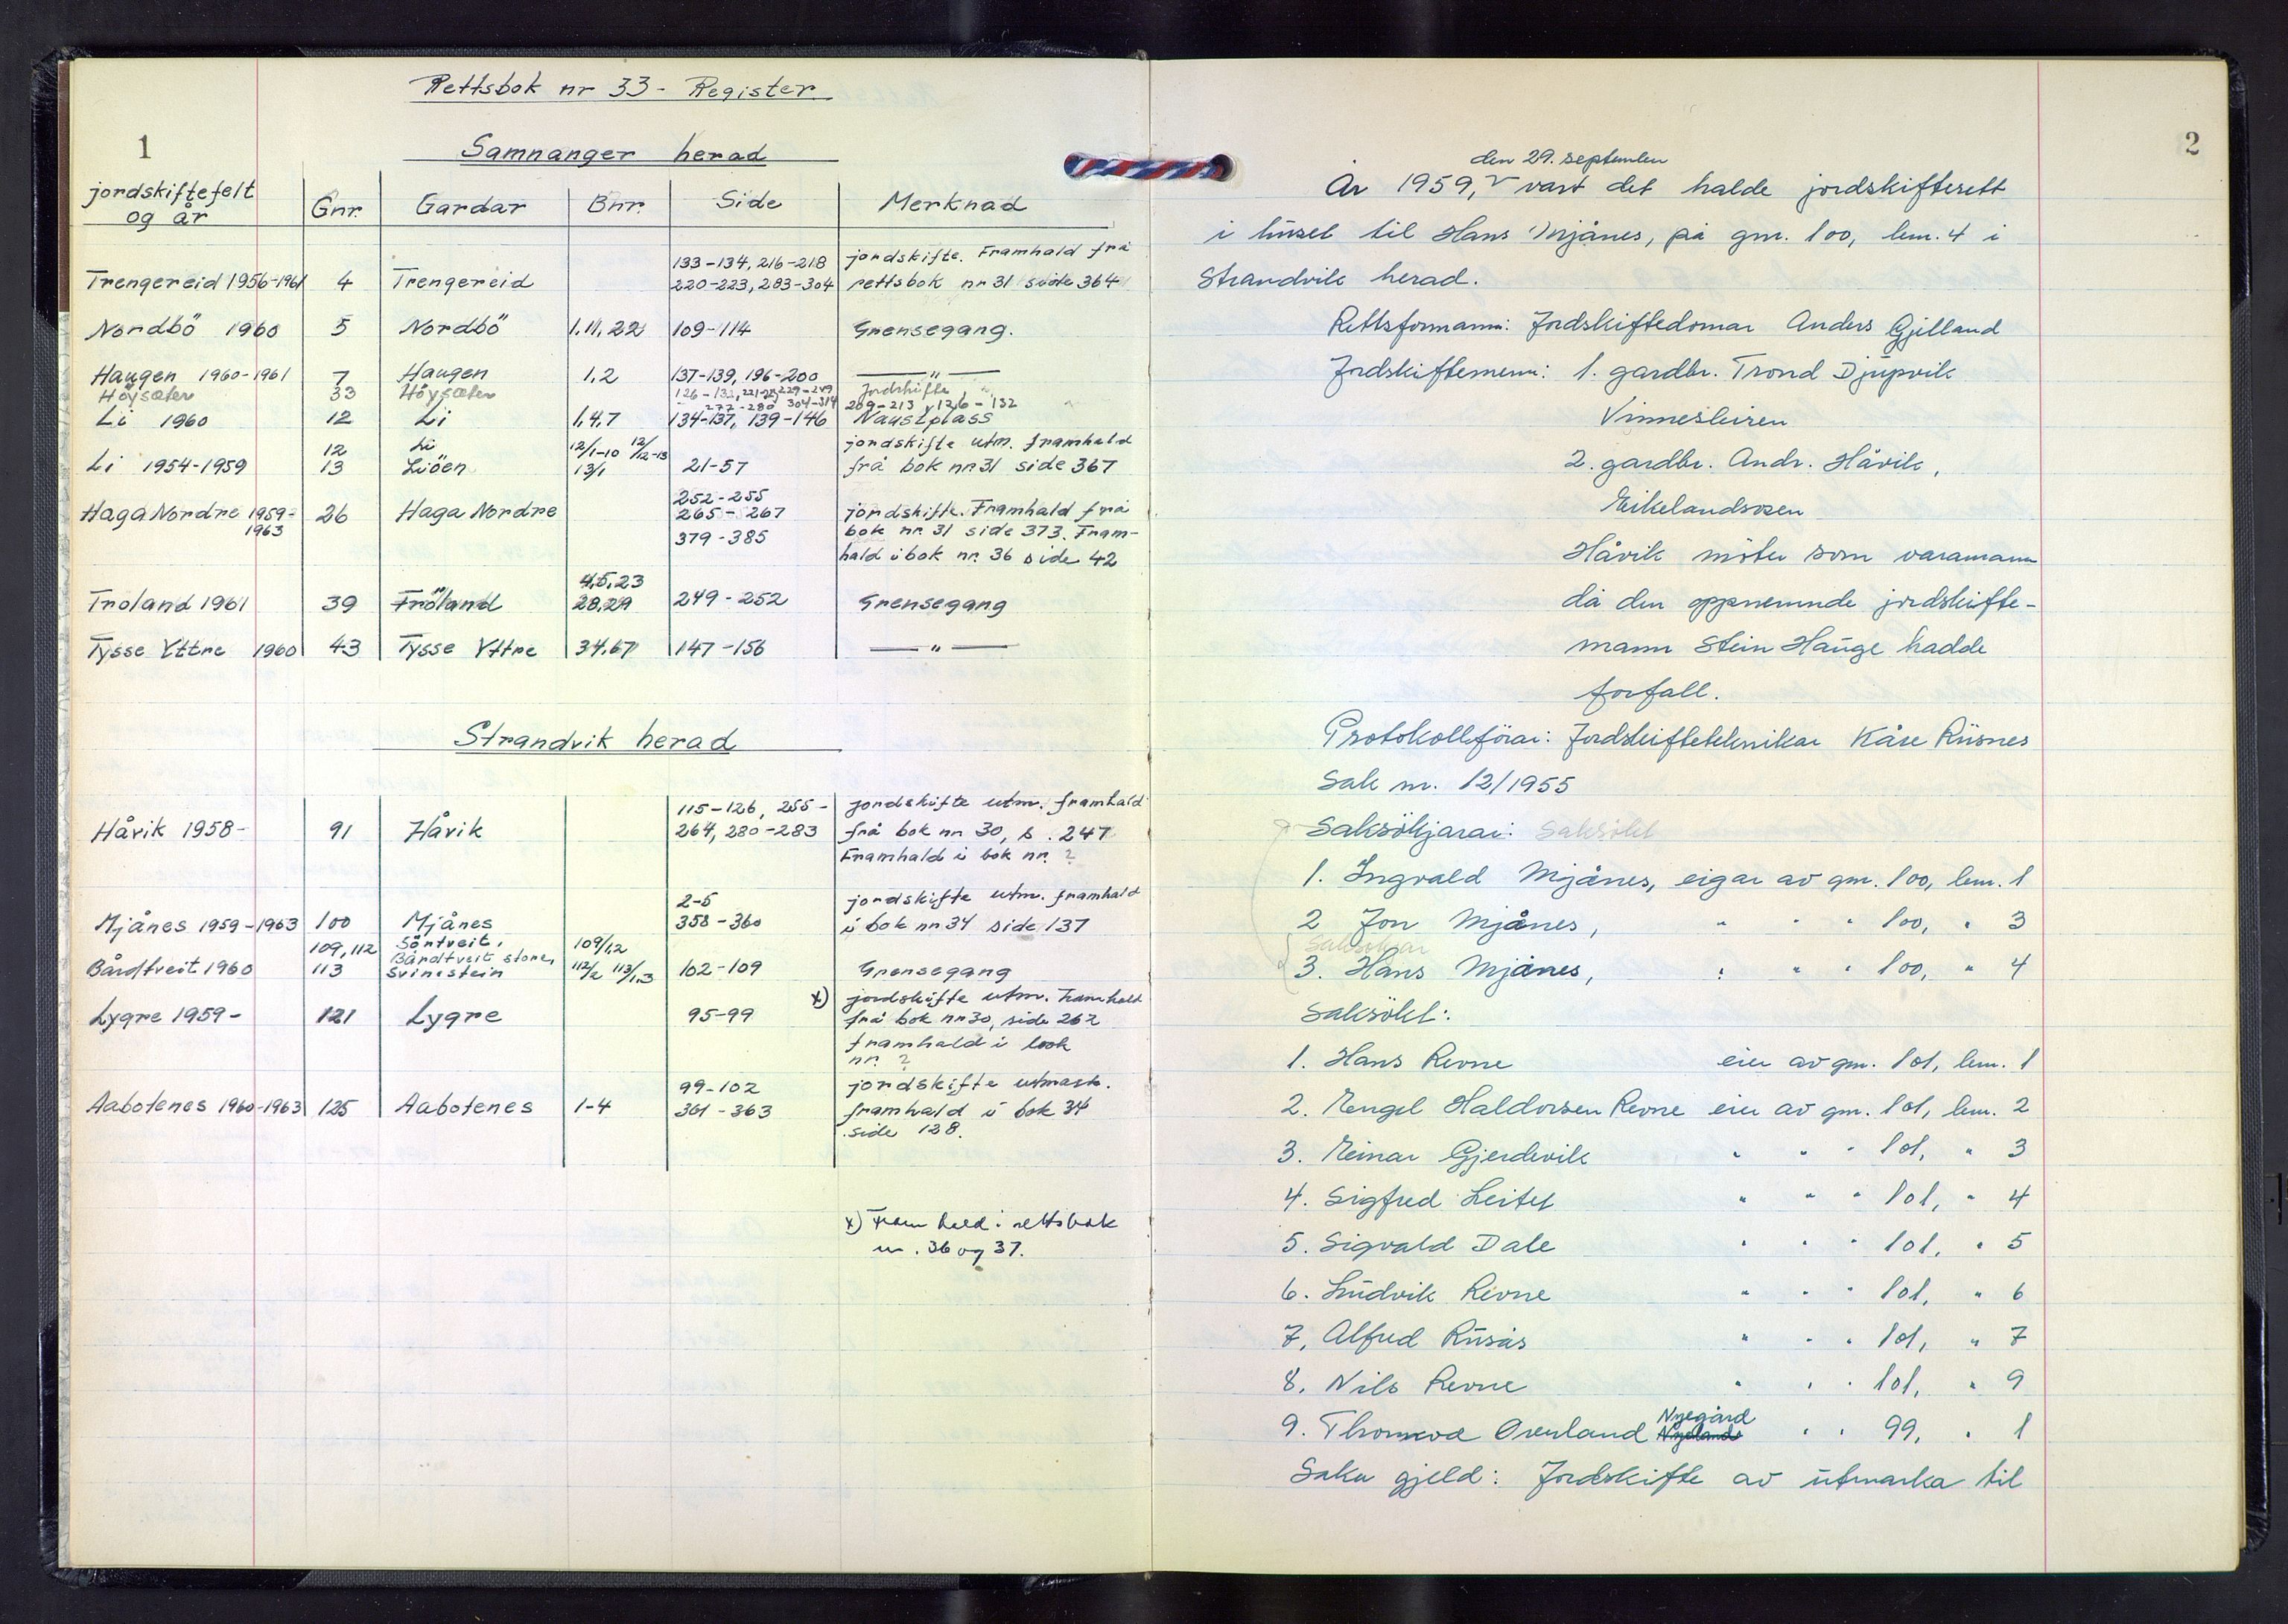 Rettsbok nr 33 - Register
1
Samnanger herad
jordskiftefelt og år | Gnr. | Gardar | Bnr. | Side | Merknad
Trengereid 1956-1961 | 4 | Trengereid | | 133-134, 216-218 220-223, 283-304 | jordskifte. Framhald frå rettsbok nr 31 side 364
Nordbö 1960 | 5 | Nordbö | 1, 11, 22 | 109-114 | Grensegang.
Haugen 1960-1961 | 7 | Haugen | 1,2 | 137-139, 196-200 | —— " ——
Höysæter | 33 | Höysæter | | 126-132, 229-249 277-280 304-314 | Jordskifte 209-213, 126-132
Li 1960 | 12 | Li | 1,4,7 | 134-137, 139-146 | Naustplass
Li 1954-1959 | 12 13 | Li Liöen | 12/1-10 12/12-13 13/1 | 21-57 | jordskifte utm. framhald frå bok nr 31 side 367
Haga Nordre 1959-1963 | 26 | Haga Nordre | | 252-255 265-267 379-385 | jordskifte. Framhald frå bok nr. 31 side 373. Framhald i bok nr. 36 side 42
Troland 1961 | 39 | Fröland | 4,5,23 28,29 | 249-252 | Grensegang
Tysse Yttre 1960 | 43 | Tysse Yttre | 34,67 | 147-156 | —— " ——
Strandvik herad
Håvik 1958- | 91 | Håvik | | 115-126, 255-264, 280-283 | jordskifte utm. framhald frå bok nr 30, s. 247 Framhald i bok nr. ?
Mjånes 1959-1963 | 100 | Mjånes | | 2-5 358-360 | jordskifte utm. framhald i bok nr 34 side 137
Bårdtveit 1960 | 109, 112 113 | Söntveit, Bårdtveit store, Svinestein | 109/1,2 112/2 113/1,3 | 102-109 | Grensegang
Lygre 1959- | 121 | Lygre | | 95-99 | x) jordskifte utm. Framhald frå bok nr 30, side 262 framhald i bok nr. ?
Aabotenes 1960-1963 | 125 | Aabotenes | 1-4 | 99-102 361-363 | jordskifte utmark. framhald i bok 34 side 128.
x) Framhald i rettsbok
nr. 36 og 37.
2
den 29. september
År 1959, v vart det halde jordskifterett
i huset til Hans Mjånes, på gnr. 100, bnr. 4 i
Strandvik herad.
Rettsformann: Jordskiftedomar Anders Gjelland
Jordskiftemenn: 1. gardbr. Trond Djupvik
Vinnesleiren
2. gardbr. Andr. Håvik,
Eikelandsosen
Håvik möter som varamann
då den oppnemnde jordskifte-
mann Stein Hauge hadde
forfall.
Protokollförar: Jordskifteteknikar Kåre Riisnes
Sak nr. 12/1955
Saksökjarar: Saksökt
1. Ingvald Mjånes, eigar av gnr. 100, bnr. 1
2 Jon Mjånes, " " " 100, " 3
Saksökjar
3. Hans Mjånes, " " " 100, " 4
Saksökt:
1. Hans Revne eier av gnr. 101, bnr. 1
2. Engel Haldorsen Revne eier av gnr. 101, bnr. 2
3. Einar Gjerdevik " " " 101, " 3
4. Sigfred Leitet " " " 101, " 4
5. Sigvald Dale " " " 101, " 5
6. Ludvik Revne " " " 101, " 6
7. Alfred Rusås " " " 101, " 7
8. Nils Revne " " " 101, " 9
Nygård
9. Thormod Overland Nygelands " " 99, " 1
Saka gjeld: Jordskifte av utmarka til